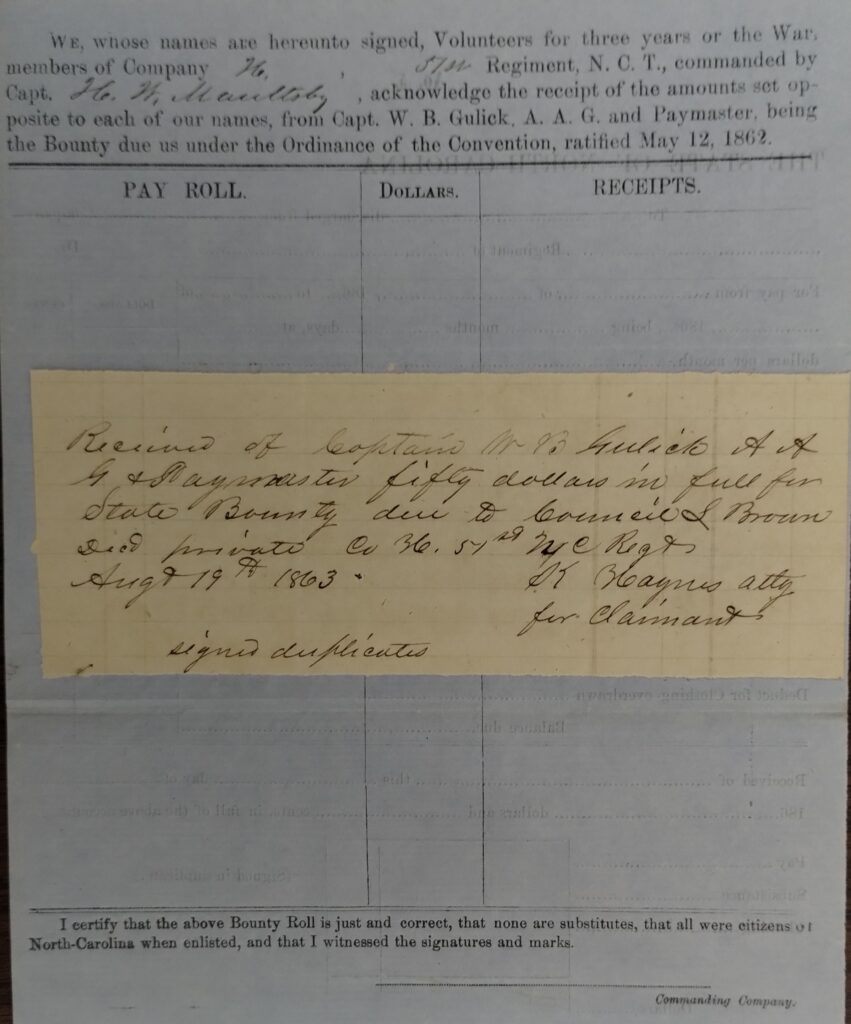 WE, whose names are hereunto signed, Volunteers for three years or the War,
members of Company H, , 51st Regiment, N. C. T., commanded by
Capt. H. W. Maultsby , acknowledge the receipt of the amounts set op-
posite to each of our names, from Capt. W. B. Gulick, A. A. G. and Paymaster, being
the Bounty due us under the Ordinance of the Convention, ratified May 12, 1862.
PAY ROLL. DOLLARS. RECEIPTS.
Received of Captain W B Gulick A A
G & Paymaster fifty dollars in full for
State Bounty due to Council S Brown
Decd private Co H. 51st N C Regt
Augt 19th 1863. SK Haynes atty
for Claimant
signed duplicates
I certify that the above Bounty Roll is just and correct, that none are substitutes, that all were citizens of
North-Carolina when enlisted, and that I witnessed the signatures and marks.
Commanding Company.